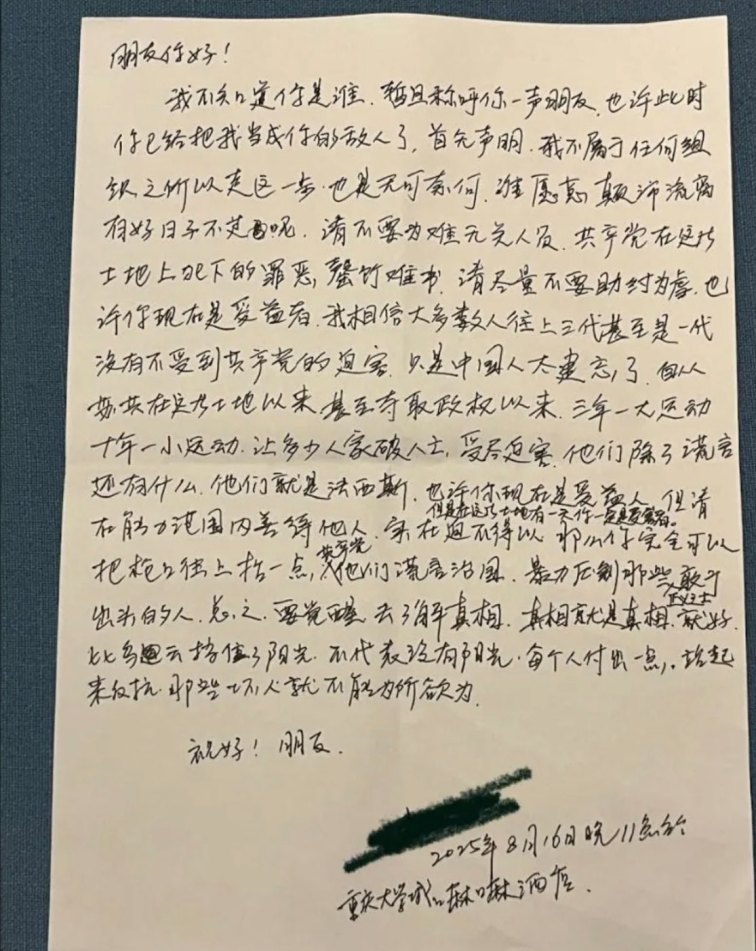 朋友你好！
我不知道你是谁，暂且称呼你一声朋友，也许此时
你已给把我当成你的敌人了，首先声明，我不属于任何组
织之所以走这一步也是无可奈何，谁愿意颠沛流离
有好日子不过呢，请不要为难无关人员，共产党在这片
土地上犯下的罪恶，罄竹难书，请尽量不要助纣为虐，也
许你现在是受益者，我相信大多数人往上三代甚至是一代
没有不受到共产党的迫害，只是中国人太健忘了，自从
共在这片土地以来，甚至夺取政权以来，三年一大运动
十年一小运动，让多少人家破人亡，受尽迫害，他们除了谎言
还有什么，他们就是法西斯，也许你现在是受益人，但请
但是在这片土地有一天你一定是受害者。
在能力范围内善待他人，实在迫不得以，那么你完全可以
把枪口往上抬一点，共产党他们谎言治国，暴力压制那些敢于
出头的人，正义之士，总之，要觉醒，去了解真相，真相就是真相，就好
比乌云挡住了阳光，不代表没有阳光，每个人付出一点，站起
来反抗，那些坏人就不能为所欲为，
祝好！朋友，
2025年8月16日晚11点於
重庆大学城